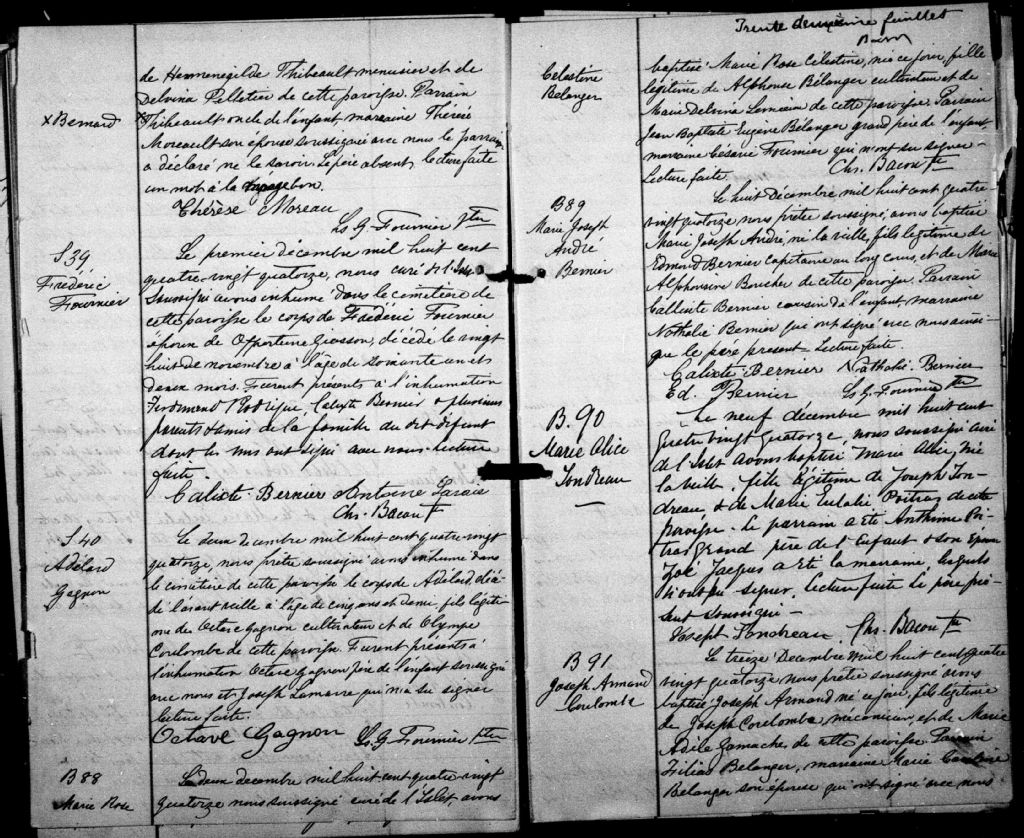 de Hermenegilde Thibeault menusier et de
Delvina Pelletier de cette paroisse. Parrain
x Bernard
Thibeault oncle de l'enfant, marraine Thérèse
Moreault son épouse soussignée avec nous le parrain
a déclaré ne le savoir. Le père absent. Lecture faite
un mot à la bon.
Thérèse Moreau
Ls G. Fournier Ptre
S 39
Fréderic
Fournier
Le premier décembre mil huit cent
quatre-vingt quatorze, nous curé de l'Islet
soussigné avons inhumé dans le cemetière de
cette paroisse le corps de Fréderic Fournier
époux de Opportune Giasson, décédé le vingt
huit de novembre à l'âge de soixante un et
deux mois. Furent présents à l'inhumation
Ferdinand Rodrigue, Calixte Bernier & plusieurs
parents & amis de la famille du dit défunt
dont les uns ont signé avec nous. Lecture
faite.
Calixte Bernier Antoine
Chs. Bacon Ptr
S. 40
Adélard
Gagnon
Le deux decembre mil huit cent quatre vingt
quatorze, nous prêtre soussigné avons inhumé dans
le cimetière de cette paroisse le corps de Adélard, décé-
dé l'avant veille à l'âge de cinq ans et demi, fils légiti-
me de Octave Gagnon cultivateur et de Olympe
Coulombe de cette paroisse. Furent présents à
l'inhumation Octave Gagnon père de l'enfant soussigné
avec nous et Joseph Lamarre qui n'a su signer
Lecture faite.
Octave Gagnon Ls. G. Fournier Ptre
B 88
Marie Rose
Le deux decembre mil huit cent quatre vingt
quatorze nous soussigné curé de l'Islet, avons
Trente deuxième feuillet
Célestine
Belanger
baptisé Marie Rose Célestine, née ce jour, fille
légitime de Alphonse Bélanger cultivateur et de
Marie Delvina Lemain de cette paroisse. Parrain
Jean Baptiste Eugène Bélanger grand père de l'enfant,
marraine Césarie Fournier qui n'ont su signer -
Lecture faite. Chs. Bacon Ptr
B 89
Marie Joseph
André
Bernier
Le huit Décembre mil huit cent quatre
vingt quatorze nous prêtre soussigné, avons baptisé
Marie Joseph André, né la veille, fils legitime de
Edmond Bernier capitaine au long cours, et de Marie
Alphonsine Boucher de cette paroisse. Parrain
Callixte Bernier cousin de l'enfant, marraine
Nathalie Bernier qui ont signé avec nous ainsi
que le père present - Lecture faite.
Calixte Bernier Nathalie Bernier
Ed. Bernier Ls G. Fournier Ptre
B. 90
Marie Alice
Tondreau
Le neuf décembre mil huit cent
quatre vingt quatorze, nous soussigné curé
de l'Islet avons baptisé Marie Alice, née
la veille, fille légitime de Joseph Ton-
dreau, & de Marie Eulalie Poitras de cette
paroisse. Le parrain a été Anthime Poi-
tras grand père de l'Enfant & son Epouse
Zoé Jacques a été la marraine, lesquels
n'ont pu signer. Lecture faite le père pré-
sent soussigné -
Joseph Tondreau Chs. Bacon Ptr
B 91
Joseph Armand
Coulombe
Le treize Décembre mil huit cent quatre
vingt quatorze nous prêtre soussigné avons
baptisé Joseph Armand né ce jour, fils légitime
de Joseph Coulombe mécanicien et de Marie
Adèle Gamache, de cette paroisse. Parrain
Zilias Belanger, marraine Marie
Bélanger son épouse qui ont signé avec nous